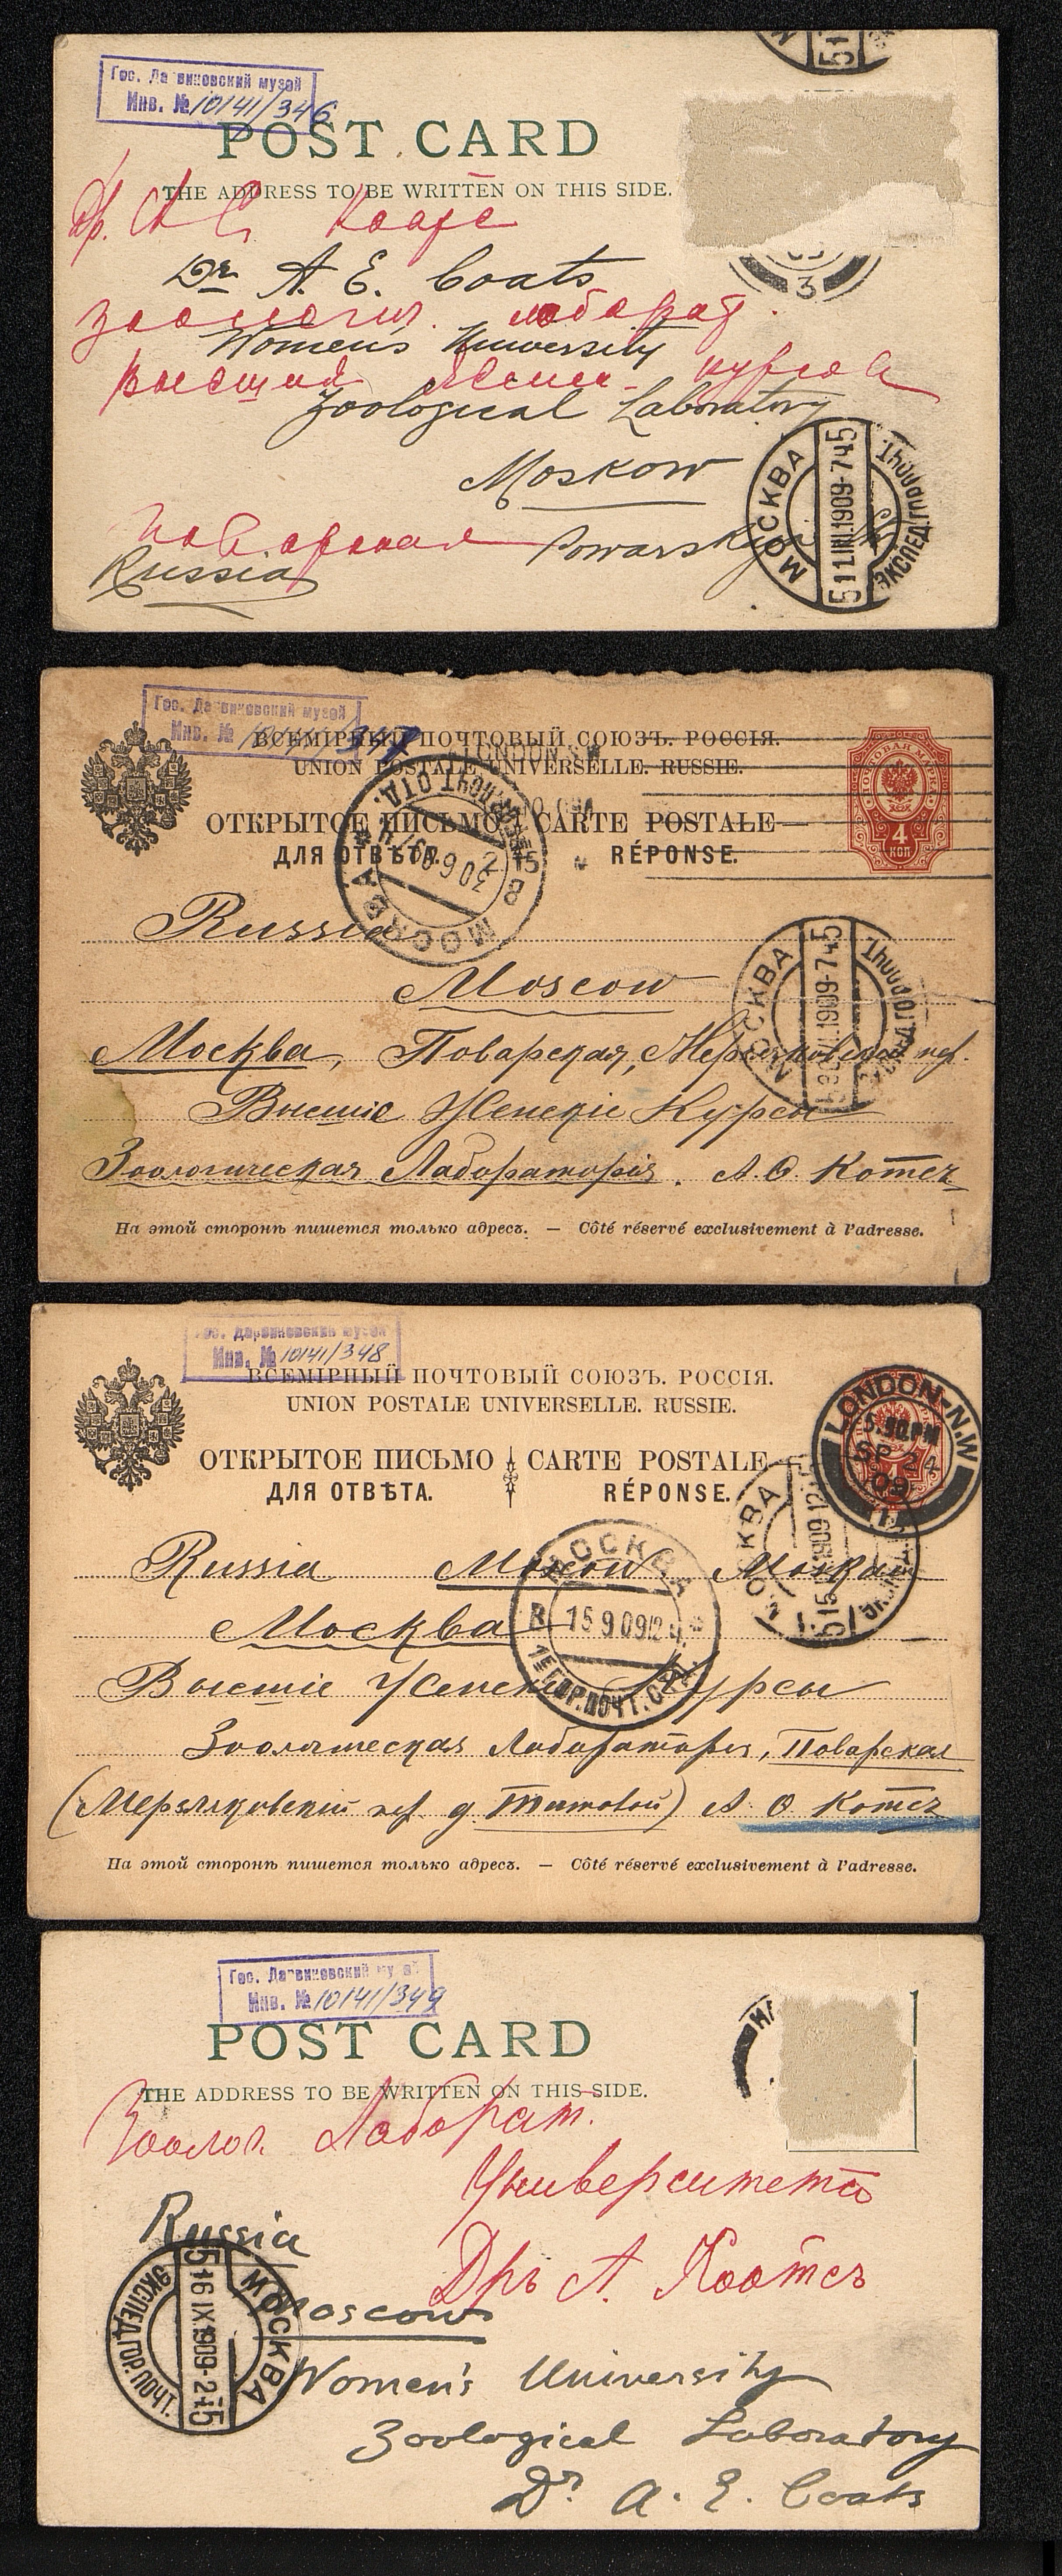 Гос. Дарвиновский музей
Инв. № 10141/346
POST CARD
THE ADDRESS TO BE WRITTEN ON THIS SIDE.
Др. А Коатс
Dr. A. E. Coats
Зоологич. лаборат.
Women's University
Высших Женск. курсов
Zoological Laboratory
Moskow
Поварская Powarskaja
Russia
МОСКВА
1909-7 45
3
Гос. Дарвиновский музей
Инв. № 347
ВСЕМІРНЫЙ ПОЧТОВЫЙ СОЮЗЪ. РОССІЯ.
UNION POSTALE UNIVERSELLE. RUSSIE.
ОТКРЫТОЕ ПИСЬМО CARTE POSTALE
ДЛЯ ОТВѢТА. RÉPONSE.
ПОЧТОВАЯ МАРКА
4 КОП
МОСКВА
30 6 09
Russia
Moscow
Москва, Поварская, Мерзляковский пер.
Высшіе Женскіе Курсы
Зоологическая Лабораторія. А. Ѳ. Котсъ
МОСКВА
1909-7 45
На этой сторонѣ пишется только адресъ. — Côté réservé exclusivement à l'adresse.
Гос. Дарвиновский музей
Инв. № 10141/348
ВСЕМІРНЫЙ ПОЧТОВЫЙ СОЮЗЪ. РОССІЯ.
UNION POSTALE UNIVERSELLE. RUSSIE.
ОТКРЫТОЕ ПИСЬМО CARTE POSTALE
ДЛЯ ОТВѢТА. RÉPONSE.
LONDON-N.W
SP 24
09
Russia Moscow Москва
Москва
МОСКВА
15 9 09
Высшіе Женскіе Курсы
Зоологическая Лабораторія, Поварская
(Мерзляковский пер. д. Титовой) А. Ѳ Котсъ
На этой сторонѣ пишется только адресъ. — Côté réservé exclusivement à l'adresse.
Гос. Дарвиновский музей
Инв. № 10141/349
POST CARD
THE ADDRESS TO BE WRITTEN ON THIS SIDE.
Зоолог. Лаборат.
Университета
Russia
Дръ А. Коотсъ
Moscow
МОСКВА
16 IX 1909-2 15
ЭКСПЕД.ГОР.ПОЧТ.
Women's University
Zoological Laboratory
Dr. A. E. Coats